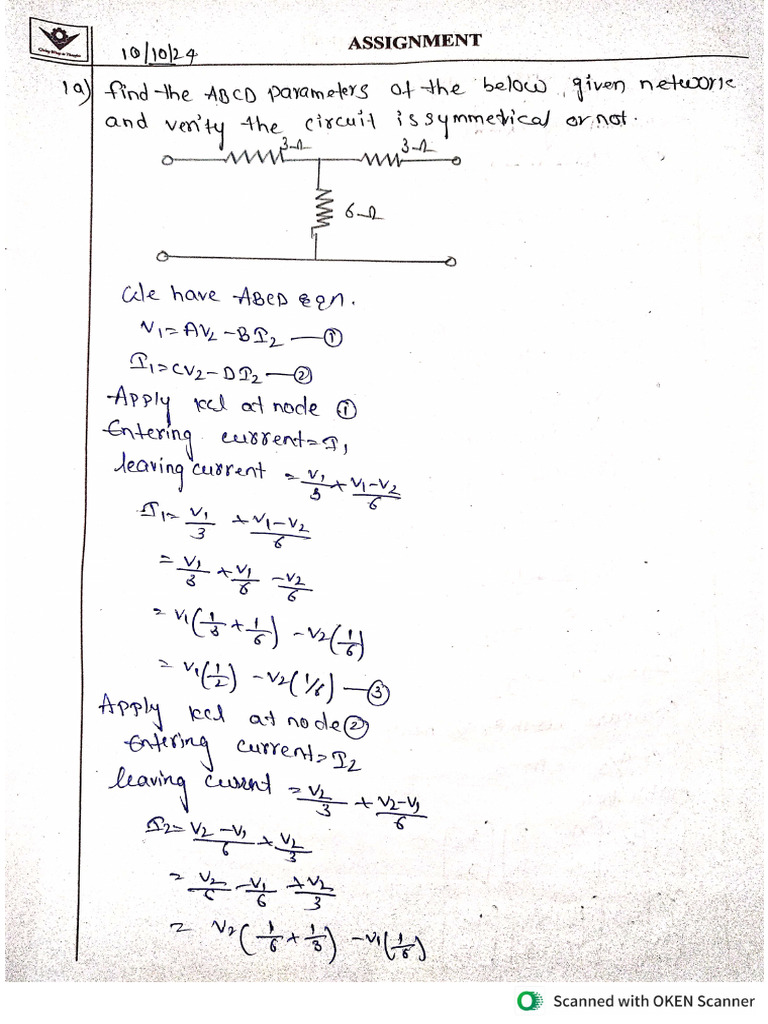 ASSIGNMENT
10/10/24
1a) find the ABCD parameters of the below given network
and verify the circuit is symmetrical or not.
3Ω 3Ω
6Ω
We have ABCD Eqn.
V₁=AV₂-BI₂ —①
I₁=CV₂-DI₂ —②
Apply kcl at node ①
Entering current=I₁
leaving current = V₁/3 + V₁-V₂/6
I₁= V₁/3 + V₁-V₂/6
= V₁/3 + V₁/6 - V₂/6
= V₁(1/3 + 1/6) - V₂(1/6)
= V₁(1/2) - V₂(1/6) —③
Apply kcl at node②
Entering current=I₂
leaving current = V₂/3 + V₂-V₁/6
I₂= V₂-V₁/6 + V₂/3
= V₂/6 - V₁/6 + V₂/3
= V₂(1/6 + 1/3) - V₁(1/6)
Scanned with OKEN Scanner